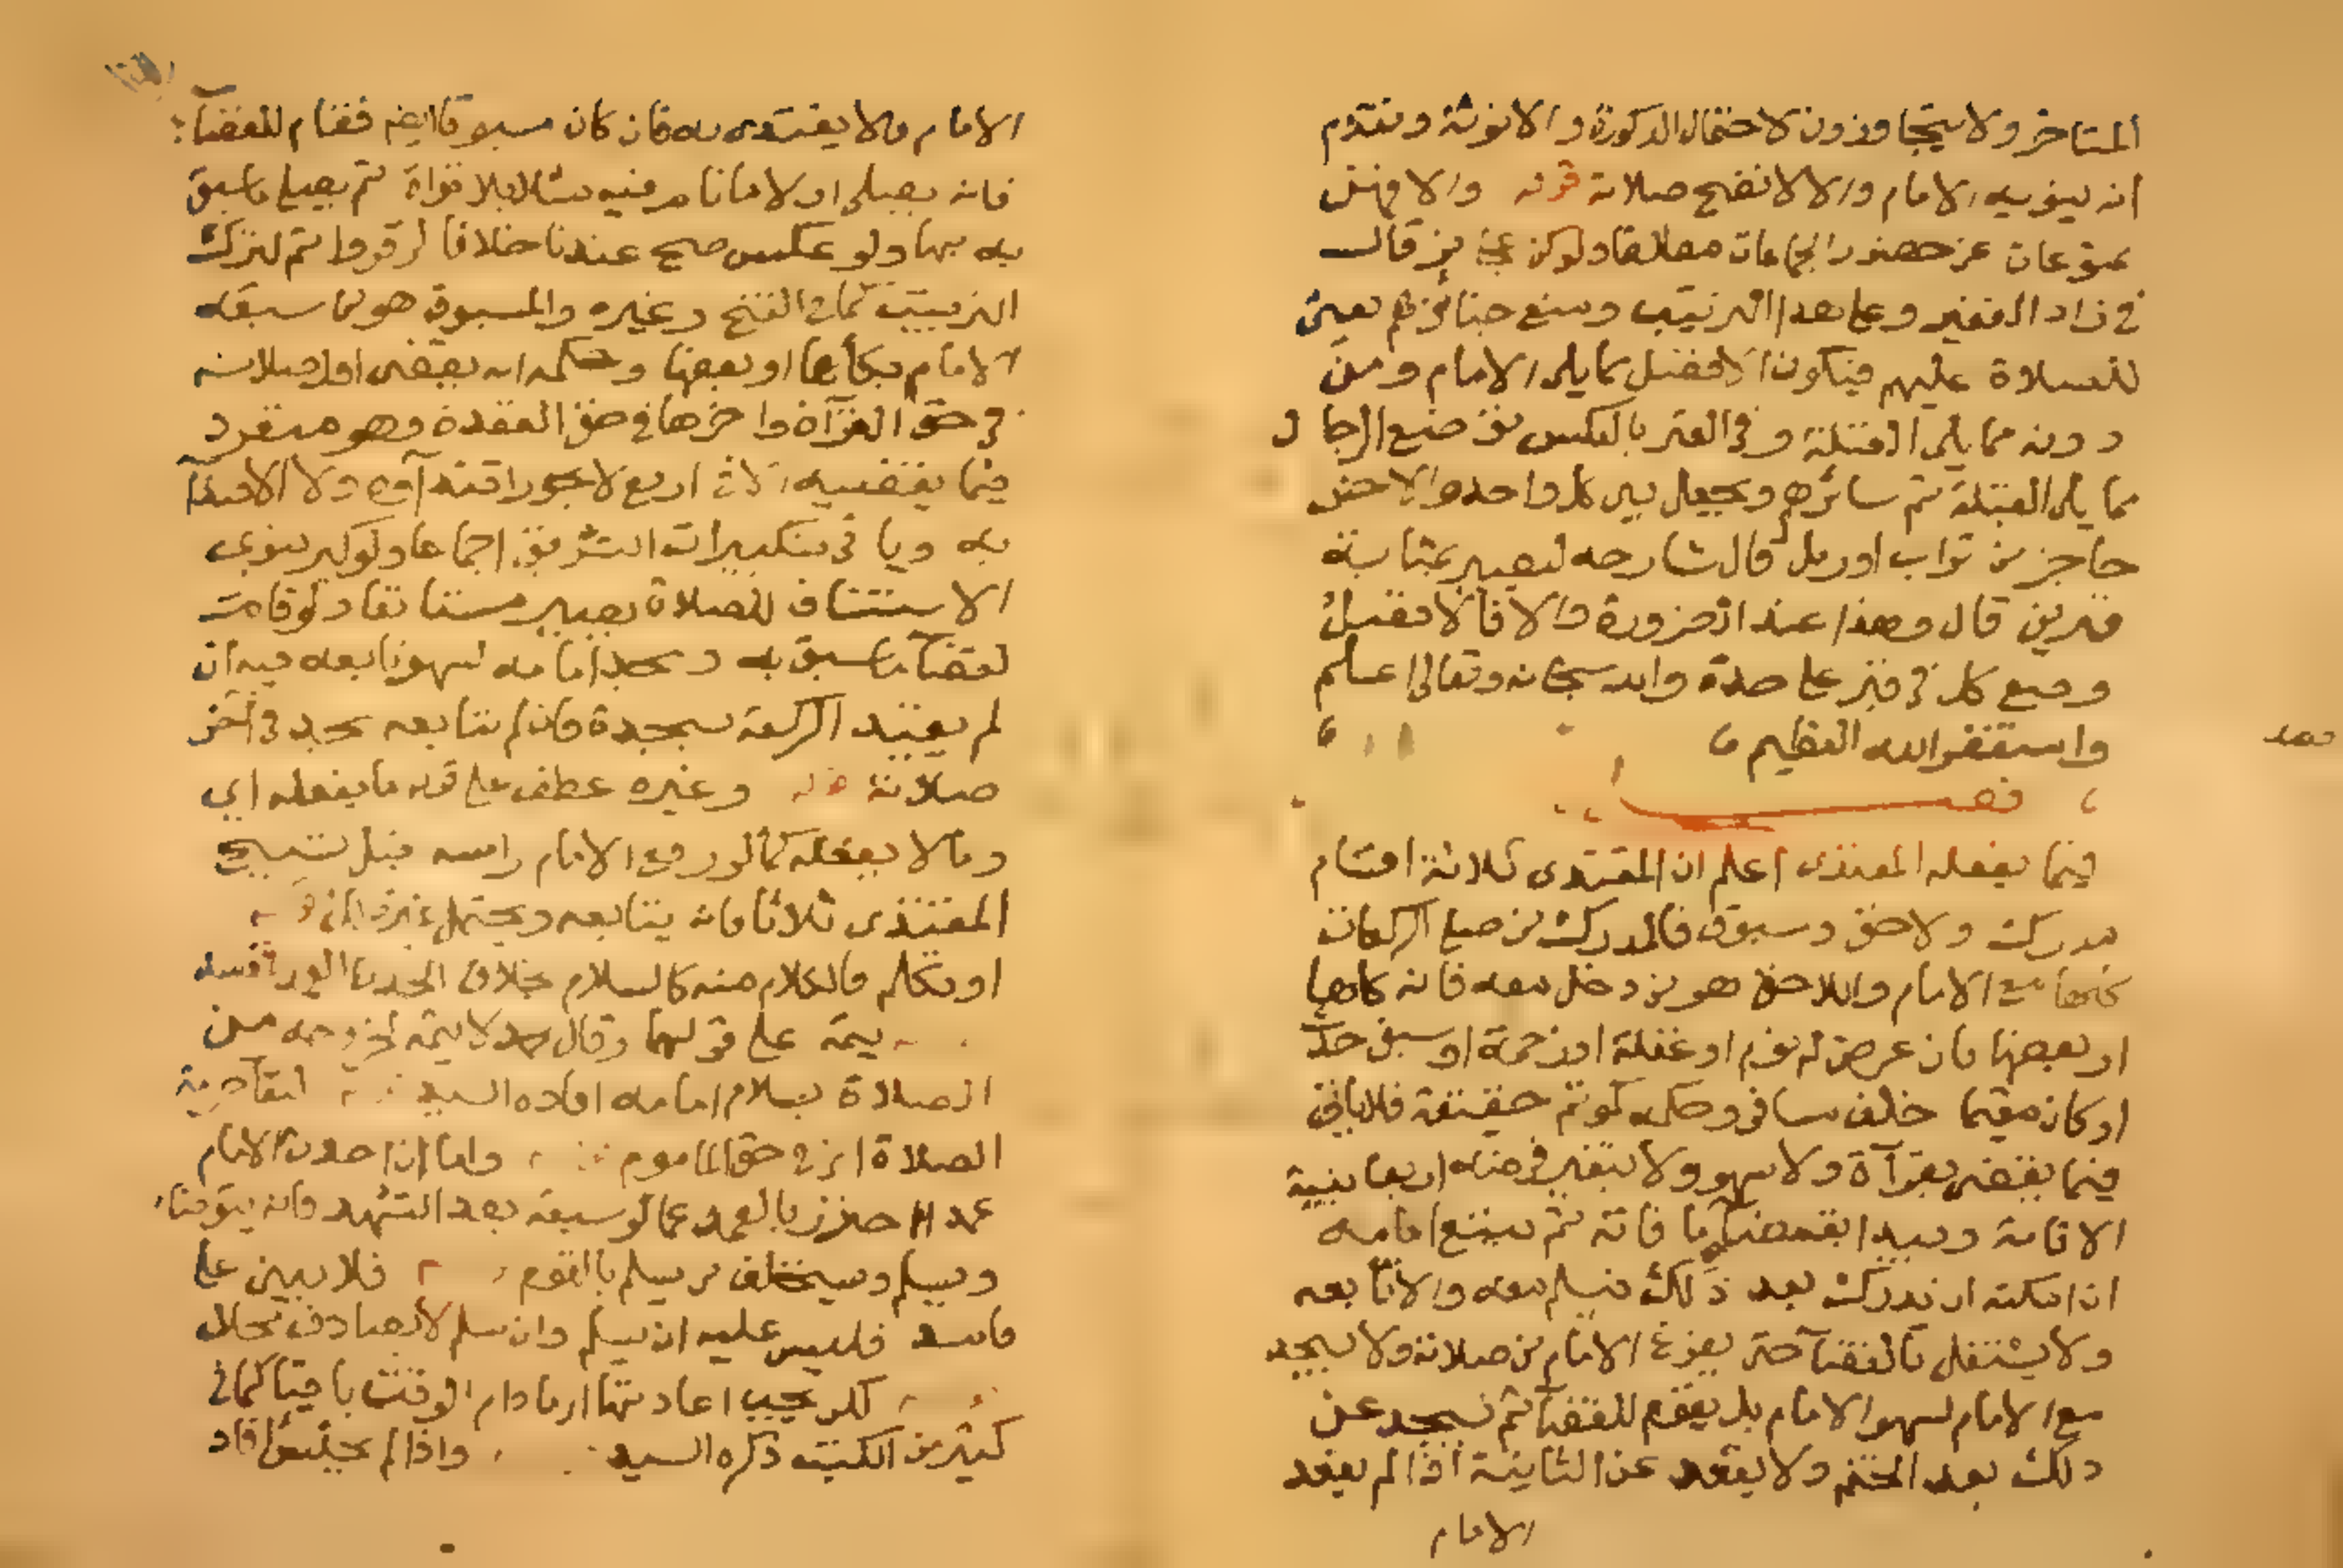 المتاخر ولا يتجاوزون لاحتمال الذكورة والانوثة وتقدم
انه ينويه الامام والا لا تصح صلاته قوله والا فهن
ممنوعات عن حضور الجماعات مطلقا ولو كن عجايز قال
في زاد الفقير وعلى هذا الترتيب وضع جنائزهم يعني
للصلاة عليهم فيكون الافضل مما يلي الامام ومن
دونه مما يلي القبلة وفي القبر بالعكس فتوضع الرجال
مما يلي القبلة ثم سائرهم ويجعل بين كل واحد والاخر
حاجز من تراب او رمل قال شارحه ليصير بمثابة
قبرين قال وهذا عند الضرورة والا فالافضل
وضع كل في قبر على حدة والله سبحانه وتعالى اعلم
واستغفر الله العظيم
فصل
فيما يفعله المقتدى اعلم ان المقتدى ثلاثة اقسام
مدرك ولاحق ومسبوق فالمدرك من صلى الركعات
كلها مع الامام واللاحق هو من دخل معه فاته كلها
او بعضها بان عرض له نوم او غفلة او زحمة او سبق حدث
او كان مقيما خلف مسافر وحكمه كمؤتم حقيقة فلا ياتي
فيما يقضي بقرآة ولا سهو ولا يتغير فرضه اربعا بنية
الاقامة ويبدا بقضاء ما فاته ثم يتبع امامه
ان امكنه ان يدركه بعد ذلك فيسلم معه والا تابعه
ولا يشتغل بالقضآ حتى يفرغ الامام من صلاته ولا يسجد
مع الامام لسهو الامام بل يقوم للقضآ ثم يسجد عن
ذلك بعد الختم ولا يقعد عن الثانية اذا لم يقعد
الامام
الامام ولا يقتدى به فان كان مسبوقا ايضا فقام للقضآ
فانه يصلي اولا ما نام فيه مثلا بلا قراة ثم يصلي ما سبق
به بها ولو عكس صح عندنا خلافا لزفر واثم لترك
الترتيب كما في الفتح وغيره والمسبوق هو من سبقه
الامام بكلها او بعضها وحكمه انه يقضى اول صلاته
في حق القرآة واخرها في حق القعدة وهو منفرد
فيما يقضيه الا في اربع لا يجوز اقتدآوه ولا الاقتدآ
به وياتي بتكبيرات التشريق اجماعا ولو كبر ينوي
الاستئناف للصلاة يصير مستانفا ولو قام
لقضآ ما سبق به وسجد امامه لسهو تابعه فيه ان
لم يقيد الركعة بسجدة فان لم يتابعه سجد في آخر
صلاته قوله وغيره عطف على قوله ما يفعله اي
وما لا يفعله كما لو رفع الامام راسه قبل تسبيح
المقتدى ثلاثا فانه يتابعه
او تكلم فالكلام منه كالسلام بخلاف الحدث
يتمه على قولهما وقال محمد لا يتمه لخروجه من
الصلاة بسلام امامه افاده السيد
الصلاة اي في حق الماموم واما اذا صلاة الامام
عمدا احترز بالعمد عما لو سبقه بعد التشهد فانه يتوضا
ويسلم ويستخلف من يسلم بالقوم فلا يبني على
فاسد فليس عليه ان يسلم وان سلم لا يصادف محلا
لكن تجب اعادتها ما دام الوقت باقيا كما في
كثير من الكتب ذكره السيد واذا لم يجلس افاد